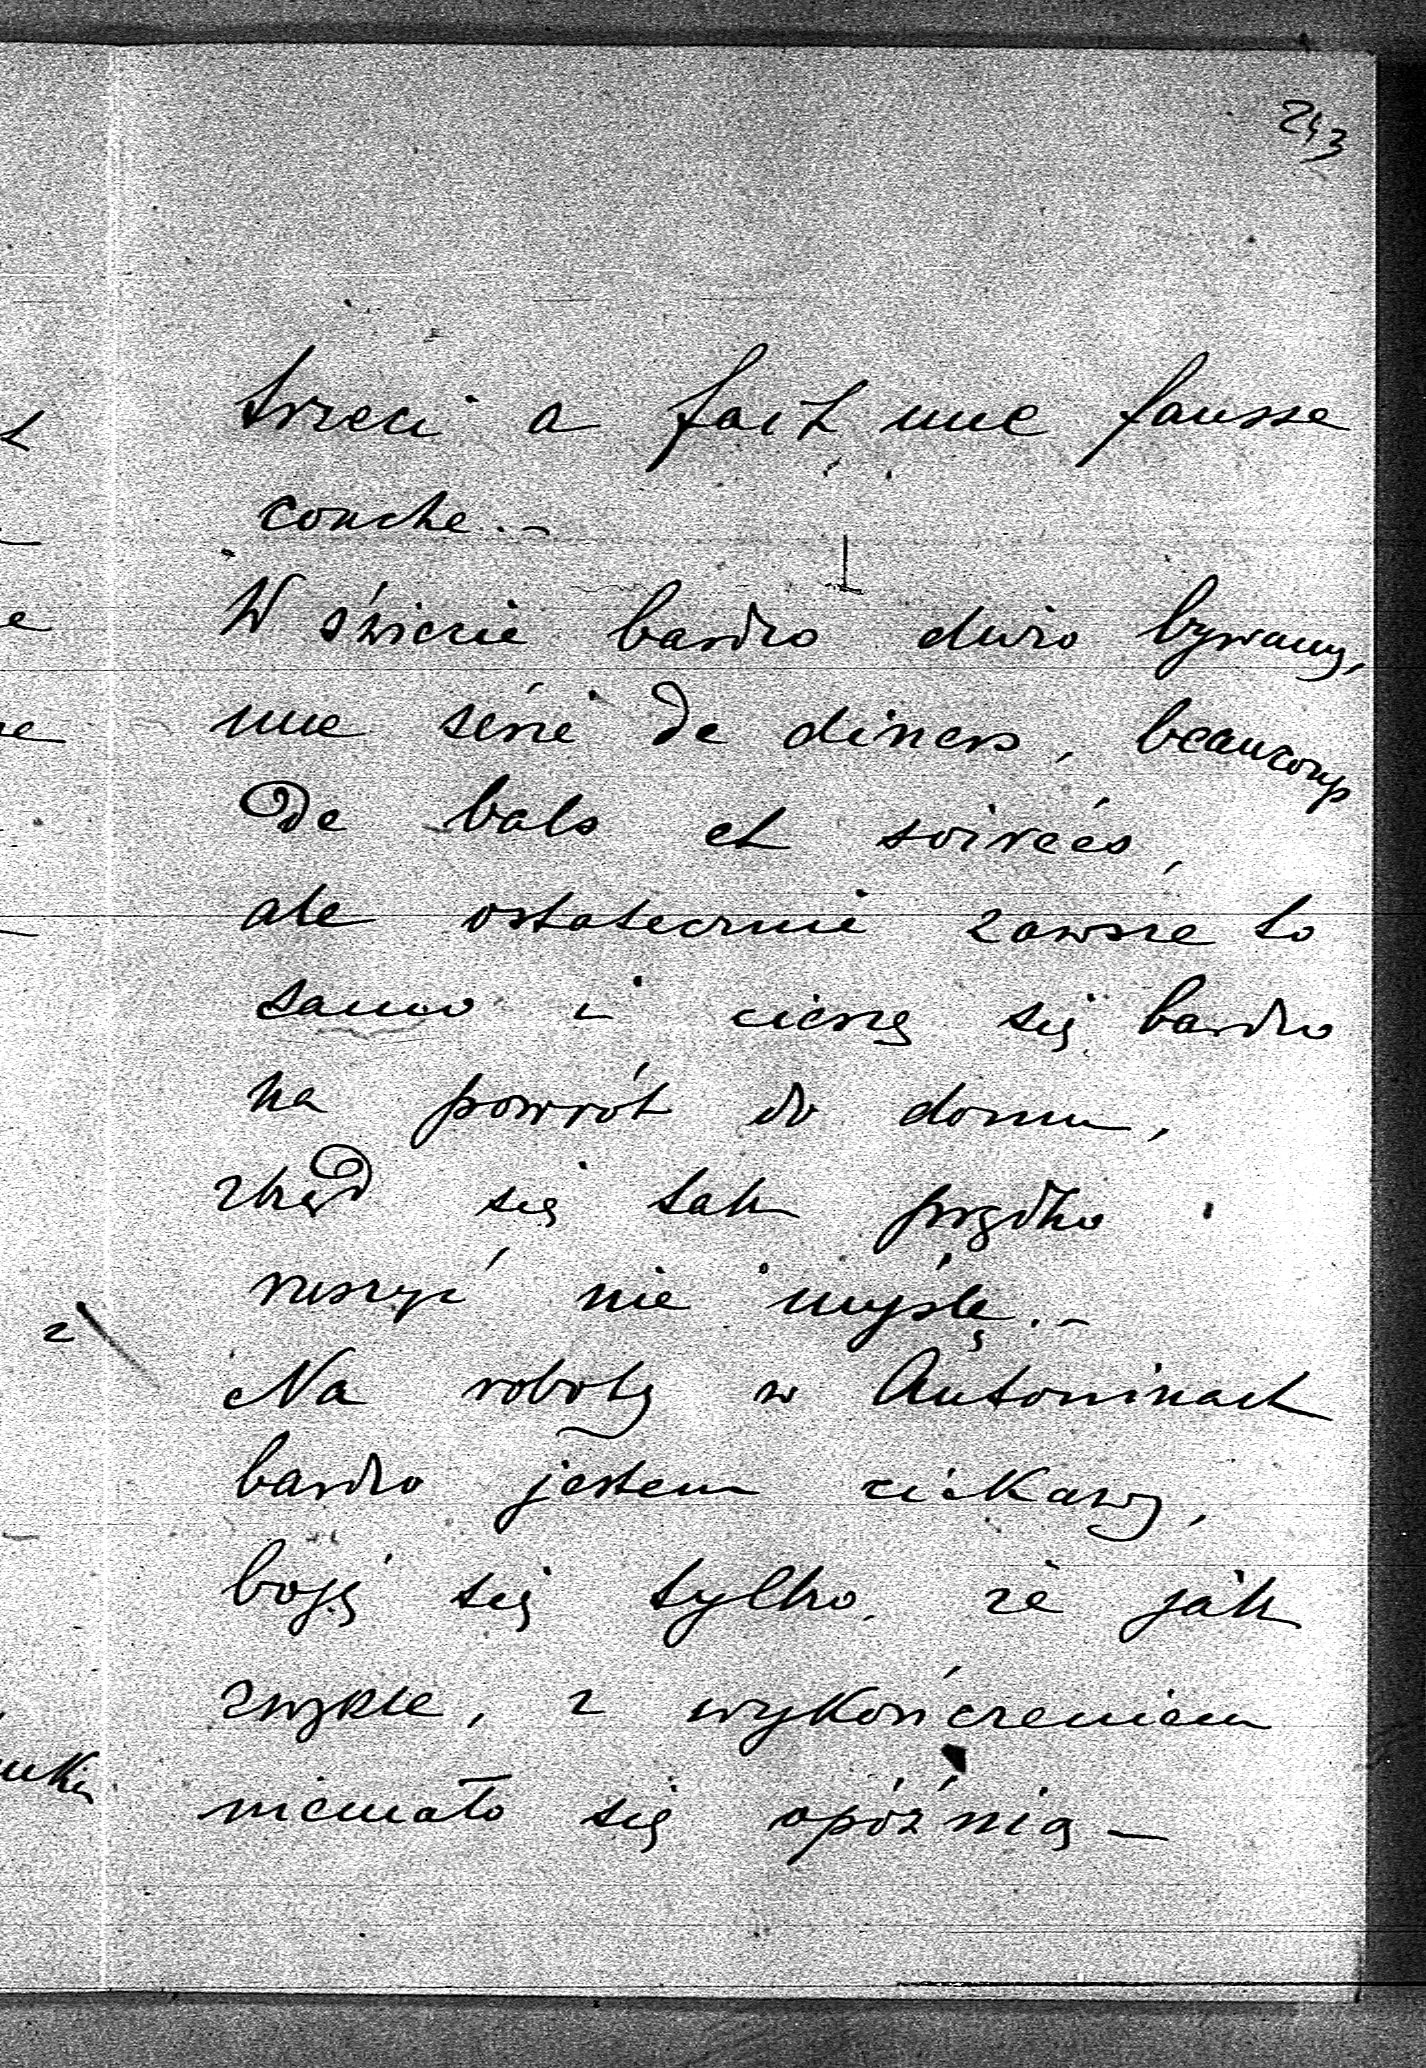 243
trzeci a fait une fausse
couche.-
W świecie bardzo dużo bywamy,
une série de diners, beaucoup
de bals et soirées,
ale ostatecznie zawsze to
samo i cieszę się bardzo
na powrót do domu,
zkąd się tak prędko
ruszyć nie myślę.-
Na roboty w Antoninach
bardzo jestem ciekawy,
boję się tylko że jak
zwykle, z wykończeniem
niemało się opóźnią —